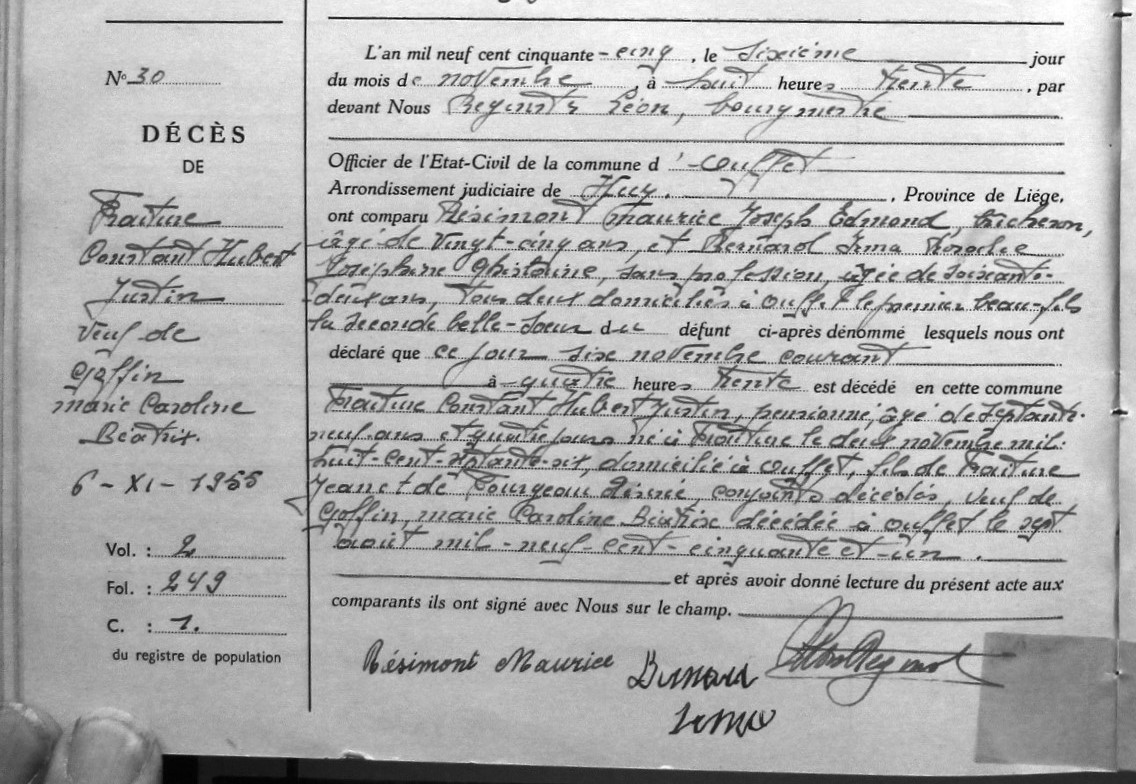 N° 30
DÉCÈS
DE
Fraiture
Constant Hubert
Justin
Veuf de
Goffin
marie Caroline
Béatrix.
6 - XI - 1955
Vol. : 2
Fol. : 249
C. : 1.
du registre de population
L'an mil neuf cent cinquante - cinq, le sixième jour
du mois de novembre à huit heures trente, par
devant Nous Léon, bourgmestre
Officier de l'Etat-Civil de la commune d'Ouffet
Arrondissement judiciaire de Huy. , Province de Liége,
ont comparu Résimont Maurice Joseph Edmond,
âgé de vingt-cinq ans, et Bernard Irma
Joséphine Ghislaine, sans profession, âgée de soixante-
-deux ans, tous deux domiciliés à Ouffet le premier beau-fils
la seconde belle-soeur du défunt ci-après dénommé lesquels nous ont
déclaré que ce jour six novembre courant
à quatre heures trente est décédé en cette commune
Fraiture Constant Hubert Justin, pensionné, âgé de septante-
neuf ans et quatre jours né à Fraiture le deux novembre mil-
huit-cent-septante-six, domicilié à Ouffet, fils de Fraiture
Jean et de conjoints décédés, veuf de
Goffin, marie Caroline Béatrix décédée à Ouffet le sept
août mil-neuf-cent-cinquante et-un.
et après avoir donné lecture du présent acte aux
comparants ils ont signé avec Nous sur le champ.
Résimont Maurice
Bernard
Irma